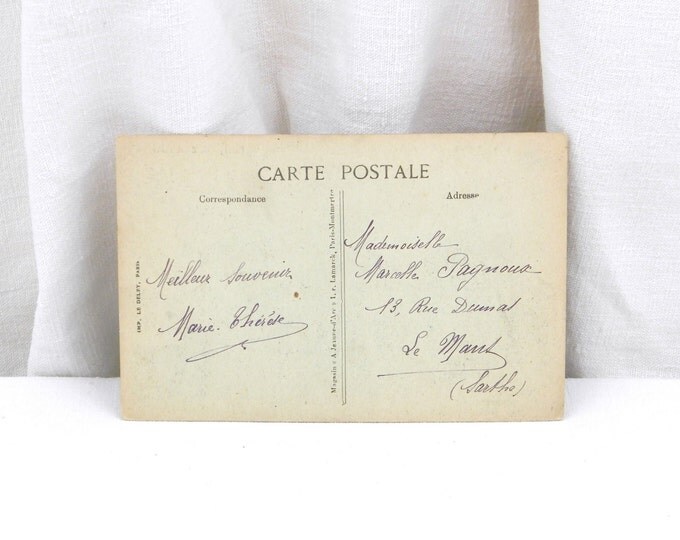 CARTE POSTALE
Correspondance
Adresse
Meilleur Souvenir
Marie-Thérèse
Mademoiselle
Marcelle Pagnoux
13, Rue Dumas
Le Mans
(Sarthe)
IMP. LE DELEY, PARIS
Magasin : A Jeanne-d'Arc : 1, r. Lamarck, Paris-Montmartre